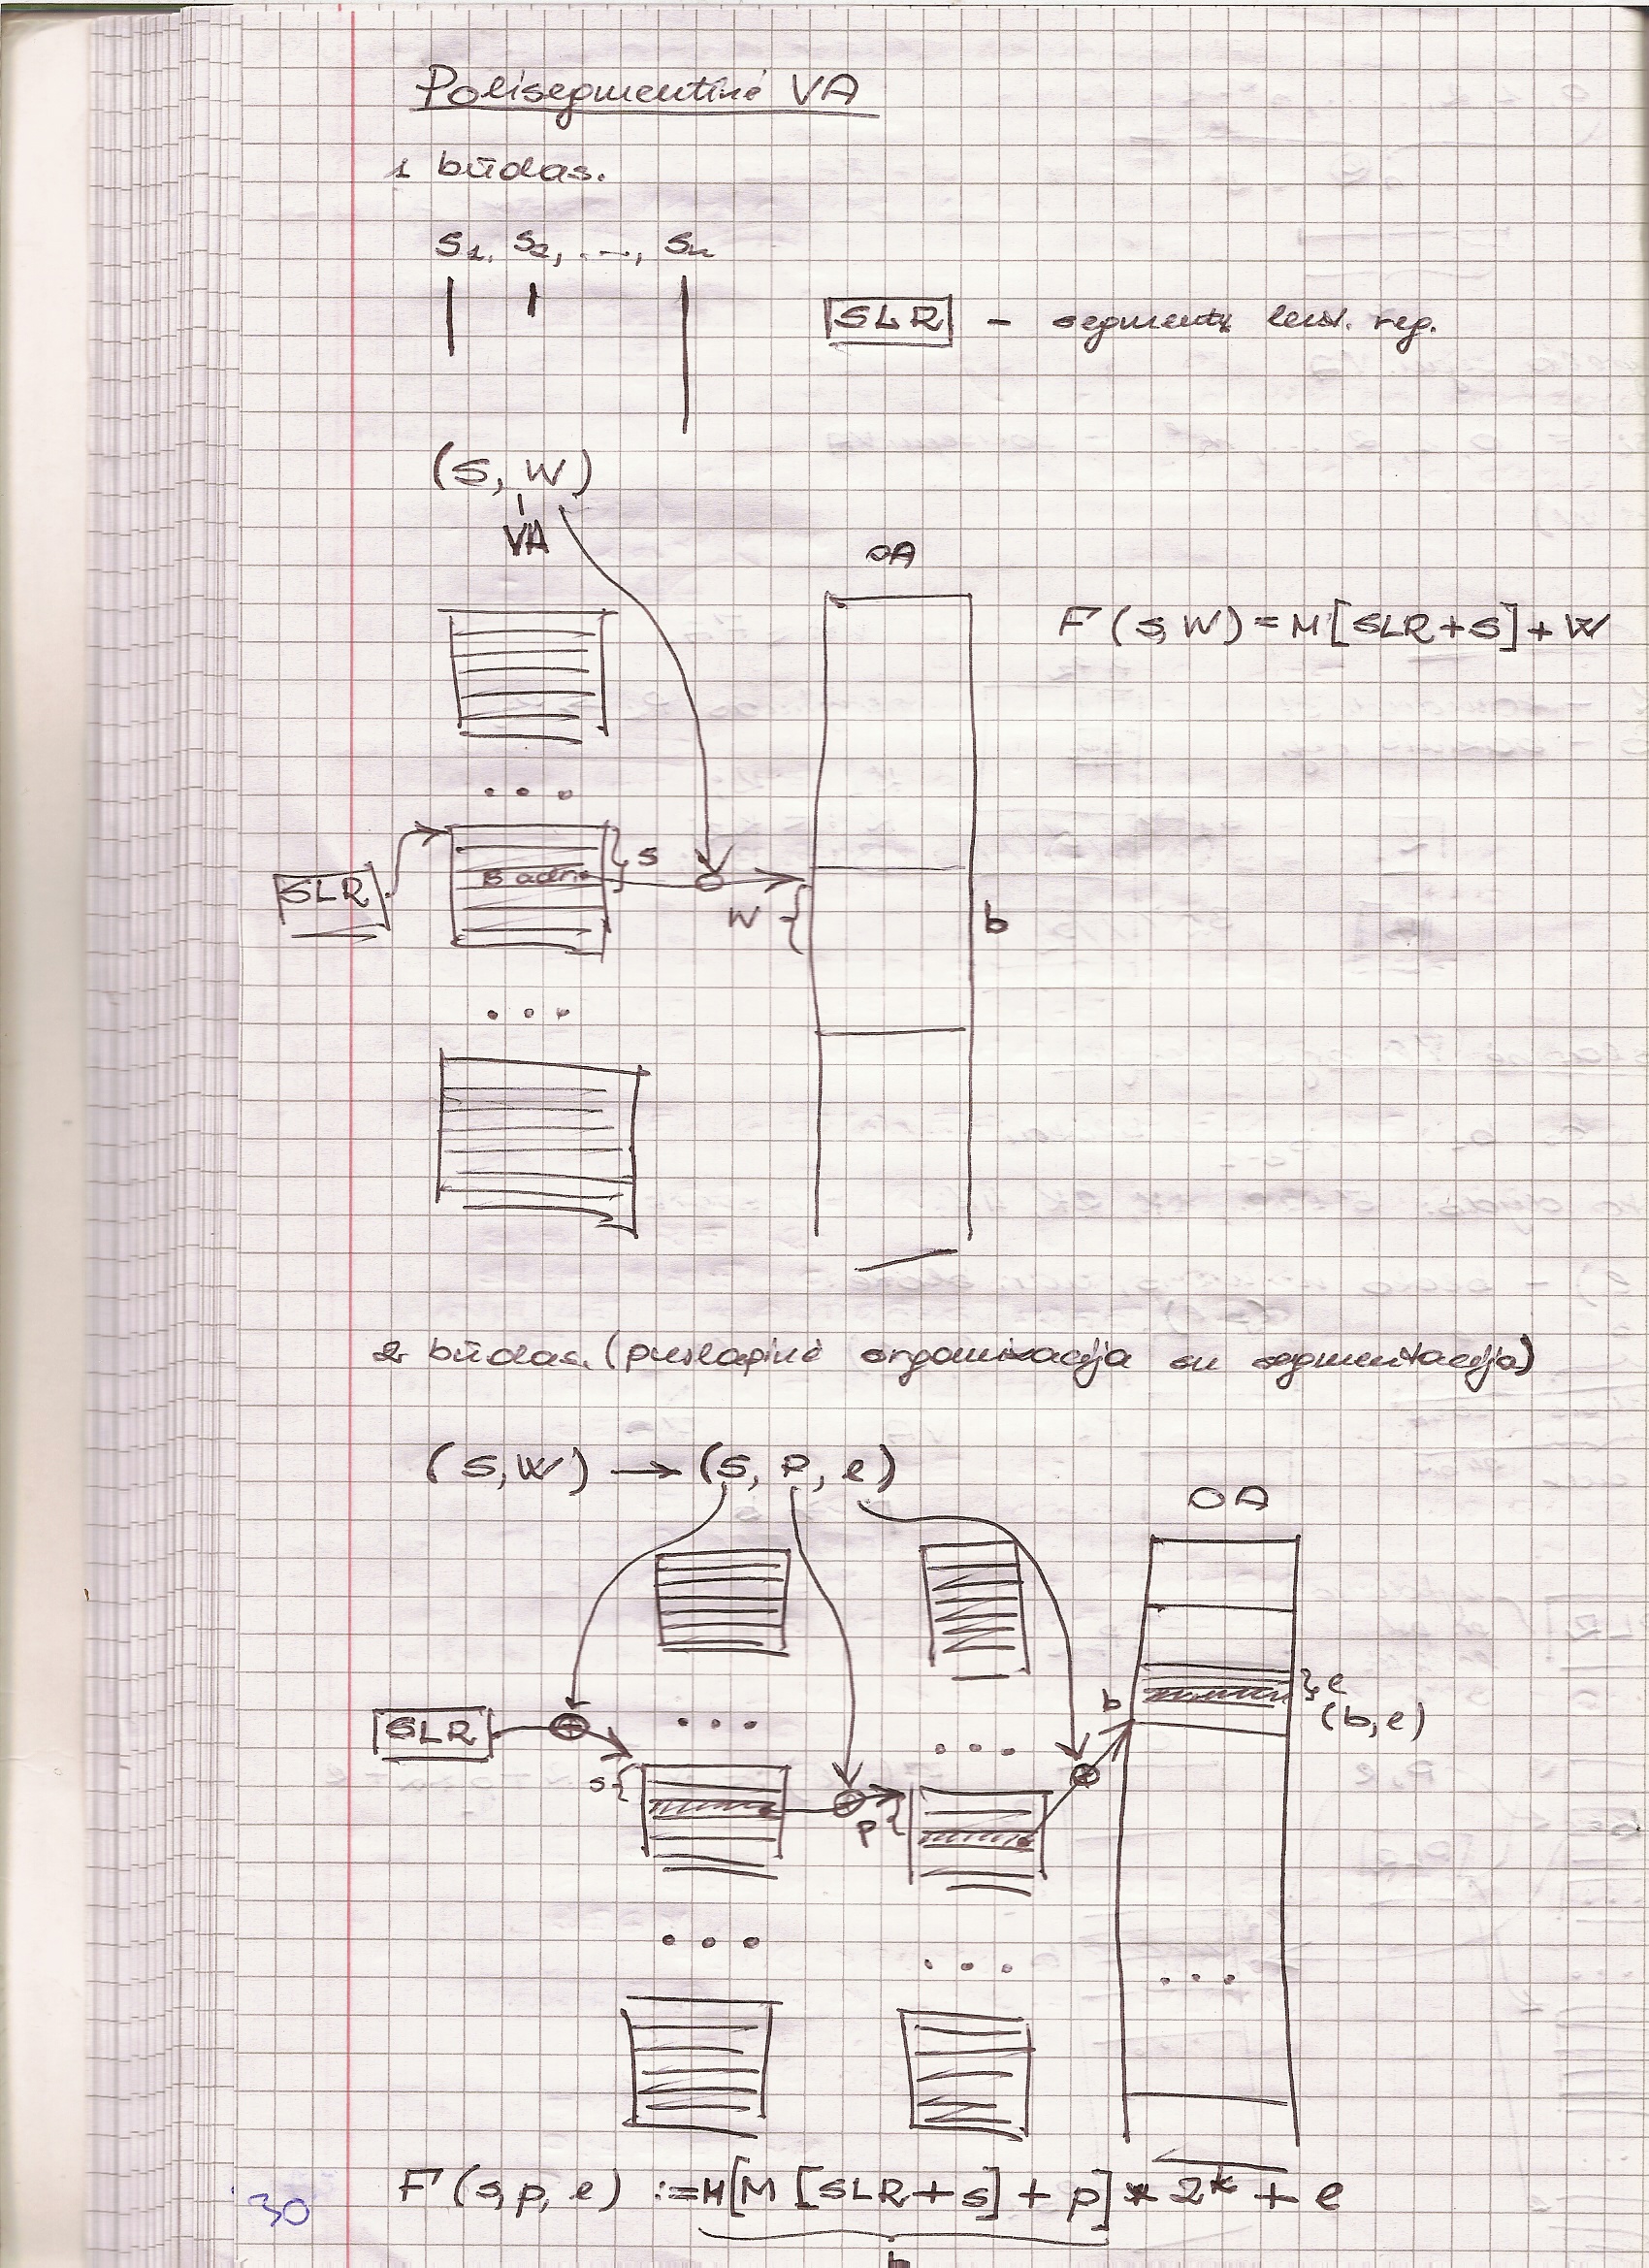 Polisegmentinė VA
1 būdas.
S1, S2, ..., Sn
SLR - segmentų lent. reg.
(S, W)
VA
OA
F(s,W) = M[SLR+S] + W
...
s
B adr.
SLR
W
b
...
2 būdas. (puslapinė organizacija su segmentacija)
(S,W) → (S, P, e)
OA
e
b
(b,e)
SLR
...
...
s
p
...
...
...
F(s,p,e) := M[M[SLR+s]+p] * 2^k + e
30
b